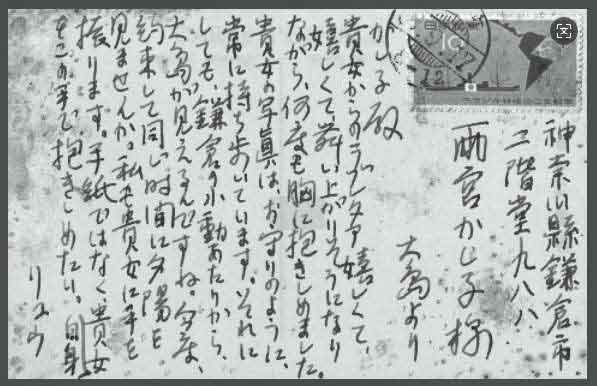 神奈川縣鎌倉市
二階堂九八八
雨宮かし子様
大島より
かし子殿
貴女からのラブレター嬉しくて、
嬉しくて、舞い上がりそうになり
ながら、何度も胸に抱きしめました。
貴女の写真はお守りのように、
常に持ち歩いています。それに
しても、鎌倉の小動あたりから、
大島が見えるんですね。今度、
約束して同じ時間に夕陽を
見ませんか。私も貴女に手を
振ります。手紙ではなく、貴女自身
をこの手で抱きしめたい。
リュウ
日本郵便
10